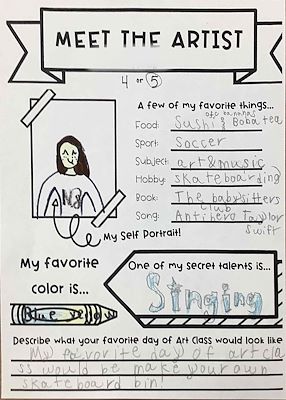 MEET THE ARTIST
4 or 5
A few of my favorite things...
Food: Sushi & Boba tea
Sport: Soccer
Subject: art & music
Hobby: skateboarding
Book: The babysitters club
Song: Antihero Taylor Swift
My Self Portrait!
My favorite color is...
One of my secret talents is...
Singing
Describe what your favorite day of Art Class would look like
My favorite day of art cla
ss would be make your own
skateboard bin!